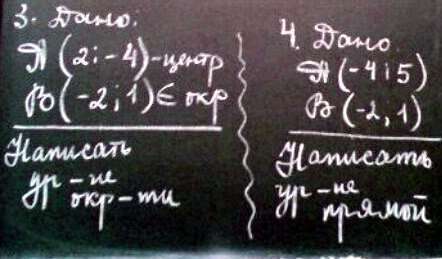 3. Дано:
A (2; -4) - центр
B (-2; 1) ∈ окр
Написать
ур - не
окр - ти
4. Дано
A (-4; 5)
B (-2, 1)
Написать
ур - не
прямой